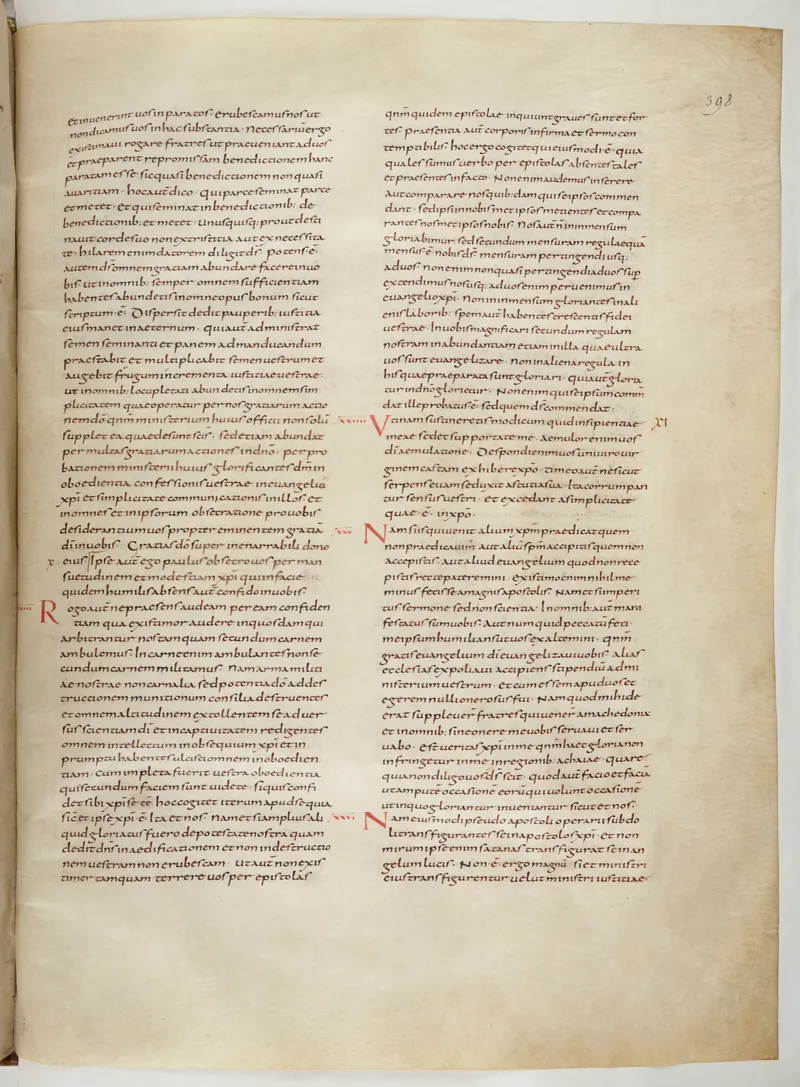 398
etinuenerint uosinparatos· erubescamusnosut
nondicamusuosinhacsubstantia· Necessariuergo
existimaui rogare fratresut praeueniantaduos
etpraeparent repromissam benedictionem hanc
paratamesse sicquasi benedictionem nonquasi
auaritiam· hocaut̄dico· quiparceseminat parce
etmetet· etquiseminatinbenedictionib: de
benedictionib: etmetet· unusquisq: proutdesti
nauitcordesuo nonextristitia autexnecessita
te· hilaremenimdatorem diligitds̄· potens·ē·
autemds̄omnemgratiam abundare facereinuo
bis utinomnib: semper omnem sufficientiam
habentesabundetisinomneopusbonum sicut
scriptum·ē· Dispersit dedit pauperib: iustitia
eiusmanetinaeternum· quiaut̄administrat
semen seminanti etpanem admanducandum
praestabit et multiplicabit semenuestrumet
augebit frugumincrementa iustitiaeuestrae·
ut inomnib: locupletati abundetisinomnemsim
plicitatem quaeoperatur pernosgratiarum actio
nemdō· qnm̄ministerium huius officii nonsolū
supplet ea quaedesuntscīs· sedetiam abundat
permultasgratiarumactionesindnō· perpro
bationem ministerii huius glorificantesdm̄in
oboedientia confessionisuestrae ineuangeliū
xpī etsimplicitate communicationisinillos et
inomneset inipsorum obsecratione prouobis
desiderantiumuospropter eminentem gratiā
dīinuobis· Gratiasdōsuper inenarrabili dono
x eius Ipse aut̄ego paulusobsecrouosperman
suetudinem etmodestiam xpī quiinfacie
quidemhumilisabsensaut̄confidoinuobis·
Rogoaut̄nepraesensaudeam pereamconfiden
tiam quaexistimoraudere inquosdamqui
arbitrantur nostamquam secundumcarnem
ambulemus· Incarneenim ambulantesnonse
cundumcarnem militamus· Namarmamiliti
ae nostrae noncarnalia sedpotentiadō addes
tructionem munitionum consilia destruentes
etomnemaltitudinem extollentem seaduer
sus scientiamdī etincaptiuitatem redigentes
omnem intellectum inobsequiumxpī etin
promptu habentesulciscīomnem inoboedien
tiam· cum impletafuerit uestra oboedientia
quisecundumfaciem sunt uidete· siquisconfi
det sibi xpīsē·eē· hoccogitet iterum apudsequia
sic̄etipsexpī·ē· Ita etnos· Nametsiampliusali
quidgloriatusfuero depotestatenostra quam
deditdns̄inaedificationem etnonindestructio
nemuestramnonerubescam· Utaut̄nonexis
timertamquam terrere uosper epistolas
qnm̄quidem epistolae inquiuntgraues suntetfor
tes· praesentia aut̄ corporisinfirmaetsermocon
temptibilis· hocergocogitetquieiusmodi·ē· quia
qualessumusuerbo per epistolasabsentestales
etpraesentesinfacto· Nonenimaudemusinserere
autcomparare nosquib:dam quiseipsoscommen
dant· sedipsiinnobismetipsosmetientesetcompa
rantesnosmetipsosnobis· Nosaut̄ninmensum
gloriabimur· sedsecundum mensuram regulaequā
mensus·ē·nobisds̄· mensurampertingendiusq:
aduos· nonenimnonquasi pertingendiaduossup
extendimusnosusq: aduosenimperuenimusin
euangelioxpī· noninmensumgloriantesinali
enislaborib: spemaut̄ habentescrescentisfidei
uestrae· Inuobismagnificari secundum regulam
nostram inabundantiam etiaminilla quaeultra
uossunt euangelizare· noninalienaregula in
hisquaepraeparatasuntgloriari· quiaut̄gloria
tur indnōglorietur· Nonenimquiseipsumcomm
dat illeprobatusē· sedquemds̄commendat·
xxiiii Utinamsustineretismodicum quidinsipientiae XI
meae sedetsupportateme· Aemulorenimuos
dīaemulatione· Despondienimuosuniuirouir
ginemcastam exhiberexpō· timeoaut̄nesicut
serpenseuamseduxit astutiasua· Itacorrumpan
tur sensusuestri· et excedant asimplicitate
quae·ē· inxpō·
xxv Namsiisquiuenit aliumxpm̄praedicatquem
nonpraedicauim̄ autaliūspm̄accipitisquemnon
accepistis· Autaliudeuangelium quodnonrece
pistisrectepateremini· existimoenimnihilme
minusfecisseamagnisapostolis· Nametsimperi
tussermone sednonscientia· Inomnib:aut̄mani
festatussumuobis· autnumquidpeccatūfeci·
meipsumhumilians utuosexaltemini· qnm̄
gratiseuangelium dīeuangelizauiuobis· alias
ecclesiasexpoliaui accipiensstipendiūadmi
nisteriumuestrum· etcumessem apuduoset
egerem nullionerosusfui· Namquodmihide
erat suppleuer̄ fratresquiuener̄amachedonia
et inomnib: sineonere meuobisseruauietser
uabo· estueritasxpīinme qnm̄haecglorianon
infringetur inme inregionib: achaiae· quare
quianondiligouosds̄scit· quodaut̄facioetfaciā
utamputē occasionē eorūquiuoluntoccasionē
utinquogloriantur inueniantursicutetnos·
xxvi Nameiusmodipseudo apostoli operariisubdo
li transfigurantesseinapostolosxpī· etnon
mirumipseenim satanastransfiguratseinan
gelumlucis· Non·ē·ergomagnū· sietministri
eiustransfigurentur uelut ministri iustitiae·